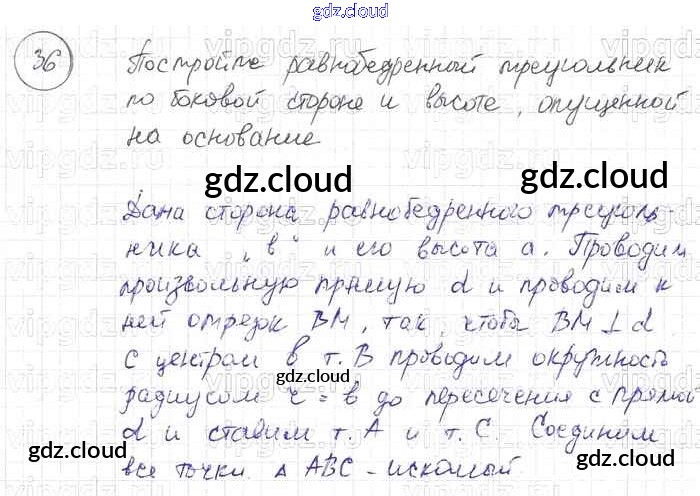 gdz.cloud
36
Постройте равнобедренный треугольник
по боковой стороне и высоте, опущенной
на основание
gdz.cloud
gdz.cloud
Дана сторона равнобедренного треуголь-
ника „в“ и его высота а. Проводим
произвольную прямую d и проводим к
ней отрезок ВМ, так, чтобы ВМ ⊥ d.
С центром в т. В проводим окружность
gdz.cloud
gdz.cloud
радиусом r = в до пересечения с прямой
d и ставим т. А и т. С. Соединим
все точки. Δ АВС - искомый.
gdz.cloud
gdz.cloud